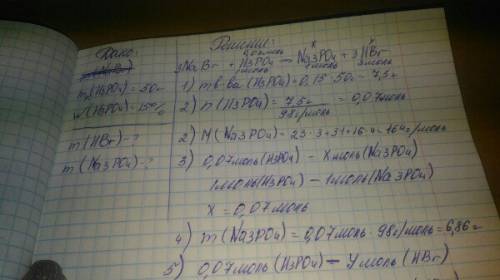 Дано:
m(H3PO4)=50г
w(H3PO4)=15%
m(HBr)-?
m(Na3PO4)-?
Решение:
0,07моль X Y
3NaBr + H3PO4 → Na3PO4 + 3HBr
1моль 1моль 3моль
1) m в-ва (H3PO4)=0,15·50г=7,5г
2) n(H3PO4)= 7,5г / 98г/моль = 0,07моль
2) M(Na3PO4)=23·3+31+16·4=164г/моль
3) 0,07моль(H3PO4) – Xмоль(Na3PO4)
1моль(H3PO4) – 1моль(Na3PO4)
X = 0,07моль
4) m(Na3PO4)=0,07моль·98г/моль=6,86г
5) 0,07моль(H3PO4) – Yмоль(HBr)